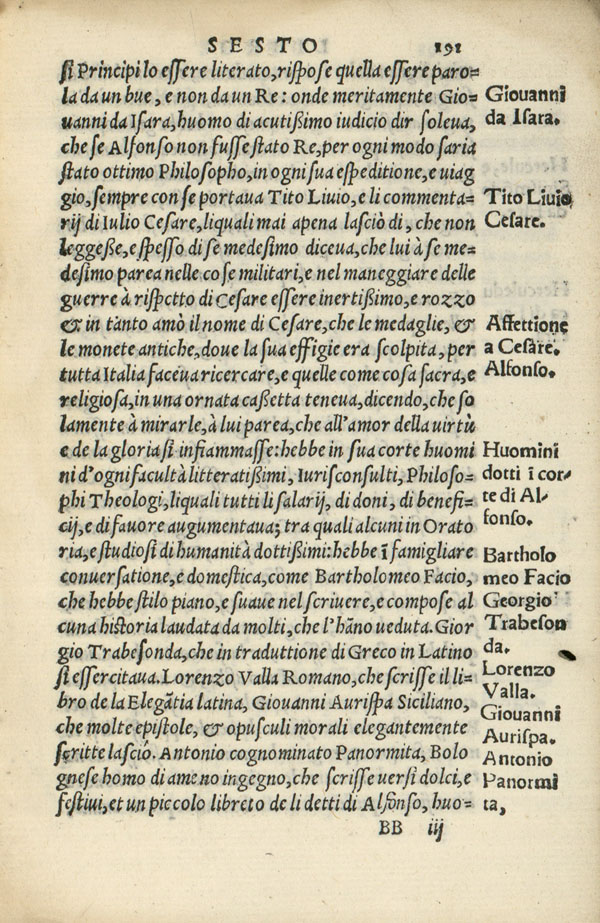 SESTO 191
ſi Principi lo eſſere literato, riſpoſe quella eſſere paro=
la da un bue, e non da un Re: onde meritamente Gio=
uanni da Iſara, huomo di acutißimo iudicio dir ſoleua,
che ſe Alfonſo non fuſſe ſtato Re, per ogni modo ſaria
ſtato ottimo Philoſopho, in ogni ſua eſpeditione, e uiag
gio, ſempre con ſe portaua Tito Liuio, e li commenta=
rij di Iulio Ceſare, liquali mai apena laſciò dì, che non
leggeße, e ſpeſſo di ſe medeſimo diceua, che lui à ſe me=
deſimo parea nelle coſe militari, e nel maneggiare delle
guerre à riſpetto di Ceſare eſſere inertißimo, e rozzo
& in tanto amò il nome di Ceſare, che le medaglie, &
le monete antiche, doue la ſua effigie era ſcolpita, per
tutta Italia faceua ricercare, e quelle come coſa ſacra, e
religioſa, in una ornata caßetta teneua, dicendo, che ſo
lamente à mirarle, à lui parea, che all'amor della uirtù
e de la gloria ſi infiammaſſe: hebbe in ſua corte huomi
ni d'ogni facultà litteratißimi, Iurisconſulti, Philoſo=
phi Theologi, liquali tutti li ſalarij, di doni, di benefi=
cij, e di fauore augumentaua; tra quali alcuni in Orato
ria, e ſtudioſi di humanità dottißimi: hebbe ĩ famigliare
conuerſatione, e domeſtica, come Bartholomeo Facio,
che hebbe ſtilo piano, e ſuaue nel ſcriuere, e compoſe al
cuna hiſtoria laudata da molti, che l'hãno ueduta. Gior
gio Trabeſonda, che in traduttione di Greco in Latino
ſi eſſercitaua. Lorenzo Valla Romano, che ſcriſſe il li=
bro de la Elegãtia latina, Giouanni Auriſpa Siciliano,
che molte epiſtole, & opuſculi morali elegantemente
ſcritte laſciò. Antonio cognominato Panormita, Bolo
gneſe homo di ameno ingegno, che ſcriſſe uerſi dolci, e
feſtiui, et un piccolo libreto de li detti di Alfonſo, huo=
BB iij
Giouanni
da Iſara.
Tito Liuio
Ceſare.
Affettione
a Ceſare.
Alfonſo.
Huomini
dotti ĩ cor-
te di Al-
fonſo.
Bartholo
meo Facio
Georgio
Trabeſon
da.
Lorenzo
Valla.
Giouanni
Auriſpa.
Antonio
Panormi
ta,